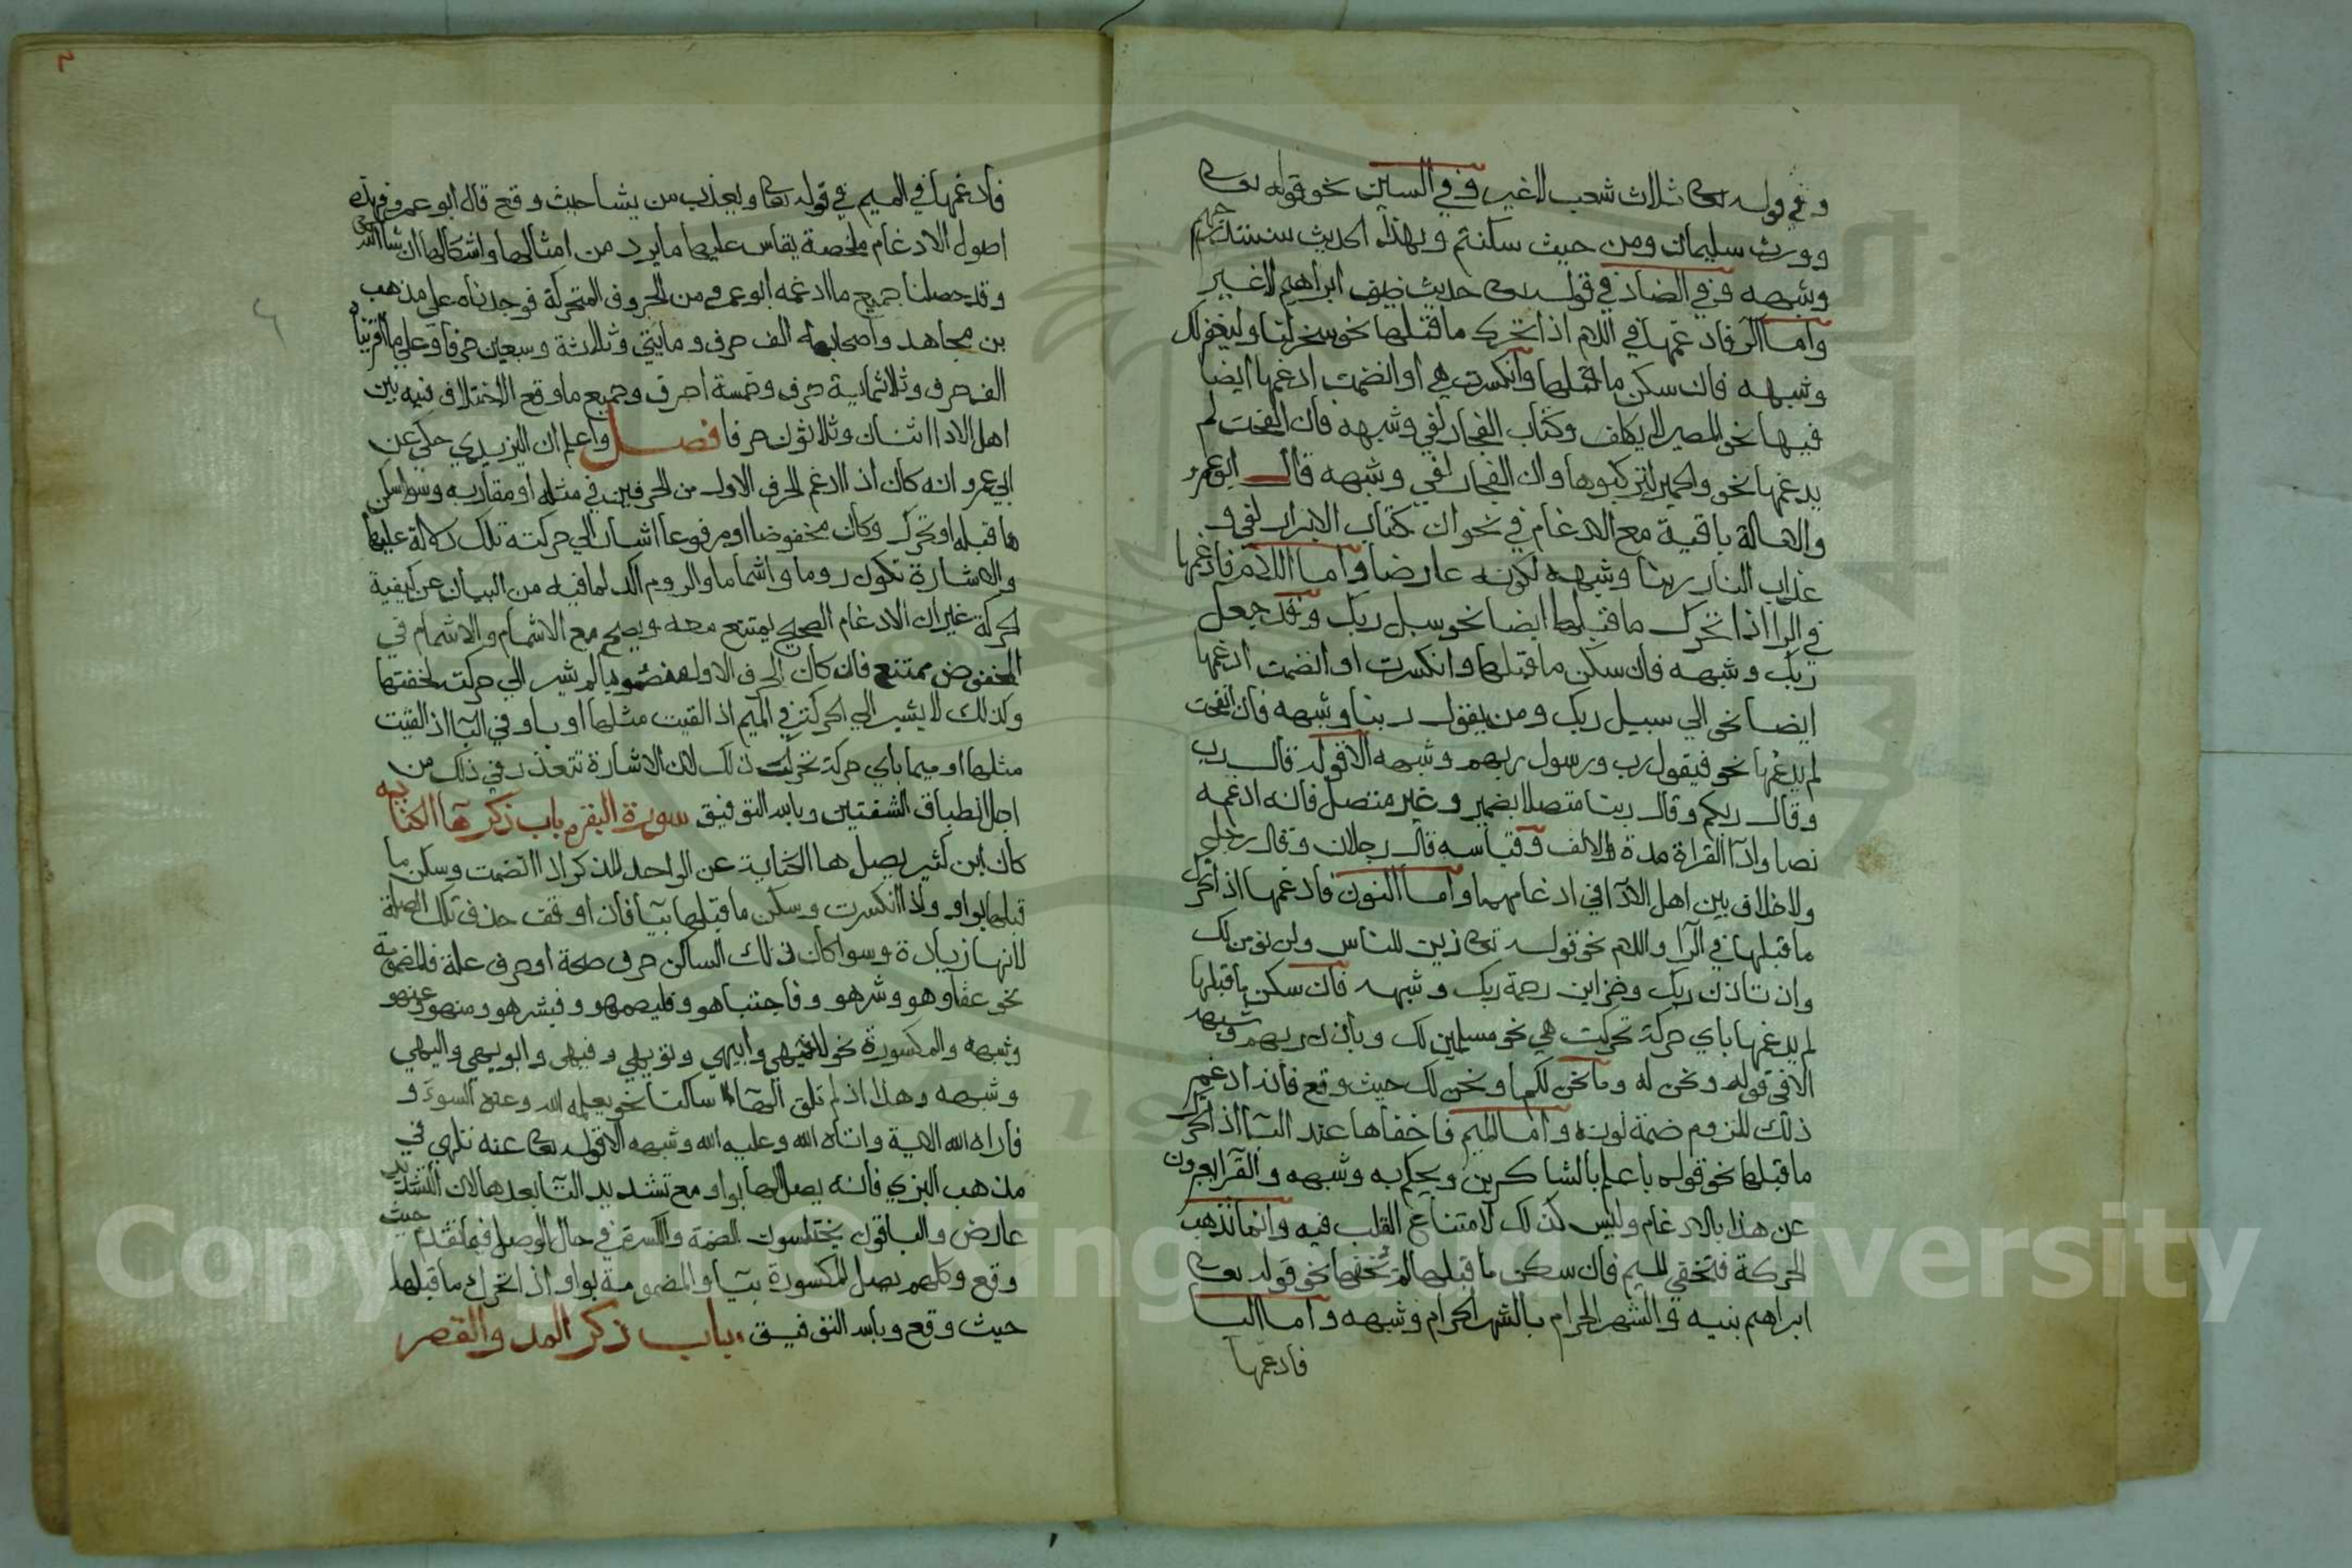 وفي قوله تعالى ثلاث شعب لا غير وفي السين نحو قوله تعالى
وورث سليمان ومن حيث سكنتم وبهذا الحديث سنستدرجهم
وشبهه وفي الضاد في قوله تعالى حديث ضيف ابراهيم لا غير
واما الرا فادغمها في اللام اذا تحرك ما قبلها نحو سخر لنا وليغفر لك
وشبهه فان سكن ما قبلها وانكسرت هي او انضمت ادغمها ايضا
فيها نحو المصير لا يكلف وكتاب الفجار لفي وشبهه فان انفتحت لم
يدغمها نحو والحمير لتركبوها وان الفجار لفي وشبهه قال ابو عمرو
والامالة باقية مع الادغام في نحو ان كتاب الابرار لفي و
عذاب النار ربنا وشبهه لكونه عارضا واما اللام فادغمها
في الرا اذا تحرك ما قبلها ايضا نحو سبل ربك وقد جعل
ربك وشبهه فان سكن ما قبلها وانكسرت او انضمت ادغمها
ايضا نحو الي سبيل ربك ومن يقول ربنا وشبهه فان انفتحت
لم يدغمها نحو فيقول رب ورسول ربهم وشبهه الا قوله قال رب
وقال ربكم وقال ربنا متصلا بضمير وغير متصل فانه ادغمه
نصا واداا القراة مدة الالف وقياسه قال رجلان وقال رجل
ولا خلاف بين اهل الادا في ادغامهما واما النون فادغمها اذا تحرك
ما قبلها في الرا واللام نحو قوله تعالى زين للناس ولن نومن لك
وان تاذن ربك وخزاين رحمة ربك وشبهه فان سكن ما قبلها
لم يدغمها باي حركة تحركت هي نحو مسلمين لك وباذن ربهم وشبهه
الا في قوله ونحن له وما نحن لكما ونحن لك حيث وقع فانه ادغم
ذلك للزوم ضمة نونه واما الميم فاخفاها عند البا اذا تحرك
ما قبلها نحو قوله باعلم بالشاكرين ويحكم به وشبهه والقرا يعبرون
عن هذا بالادغام وليس كذلك لامتناع القلب فيه وانما تذهب
الحركة فتخفي الميم فان سكن ما قبلها لم يخفها نحو قوله تعالى
ابراهم بنيه والشهر الحرام بالشهر الحرام وشبهه واما البا
فادغمها
فادغمها في الميم في قوله تعالى ويعذب من يشا حيث وقع قال ابو عمرو فهذه
اصول الادغام ملخصة يقاس عليها ما يرد من امثالها واشكالها ان شا الله تعالى
وقد حصلنا جميع ما ادغمه ابو عمرو من الحروف المتحركة فوجدناه علي مذهب
بن مجاهد واصحابه الف حرف ومايتي وثلاثة وسبعين حرفا وعلي ما اقريناه
الف حرف وثلاثماية حرف وخمسة احرف وجميع ما وقع الاختلاف فيه بين
اهل الادا اثنان وثلاثون حرفا فصل واعلم ان اليزيدي حكي عن
ابي عمرو انه كان اذا ادغم الحرف الاول من الحرفين في مثله او مقاربه وسوا سكن
ما قبله او تحرك وكان مخفوضا او مرفوعا اشار الي حركته تلك دلالة عليها
والاشارة تكون روما واشماما والروم اكد لما فيه من البيان عن كيفية
الحركة غير ان الادغام الصحيح يمتنع معه ويصح مع الاشمام والاشمام في
المخفوض ممتنع فان كان الحرف الاول منصوبا لم يشير الي حركته لخفتها
وكذلك لا يشير الي الحركة في الميم اذ القيت مثلها او باو في البا اذ القيت
مثلها او ميما باي حركة تحركت ذلك لان الاشارة تتعذر في ذلك من
اجل انطباق الشفتين وبالله التوفيق سورة البقرة باب ذكر ها الكناية
كان ابن كثير يصل ها الكناية عن الواحد المذكر اذا انضمت وسكن ما
قبلها بواو واذا انكسرت وسكن ما قبلها بيا فان اوقف حذف تلك الصلة
لانها زيادة وسوا كان ذلك الساكن حرف صحة او حرف علة فالمضمومة
نحو عقلوهو وشرهو وفاجتباهو وفليصمهو وفبشرهو ومنهو وعنهو
وشبهه والمكسورة نحو لاخيهي وابيهي ونوتيهي وفيهي وابويهي واليهي
وشبهه وهذا اذ لم تلق الها ساكنا نحو يعلمه الله وعنه السوء و
فاراه الله الاية واتاه الله وعليه الله وشبهه الا قوله تعالى عنه تلهي في
مذهب البزي فانه يصل الها بواو مع تشديد التا بعدها لان التشديد
عارض والباقون يختلسون الضمة والكسرة في حال الوصل فيما تقدم حيث
وقع وكلهم يصل المكسورة بيا والمضمومة بواو اذا تحرك ما قبلها
حيث وقع وبالله التوفيق باب ذكر المد والقصر
Copyright © King Saud University